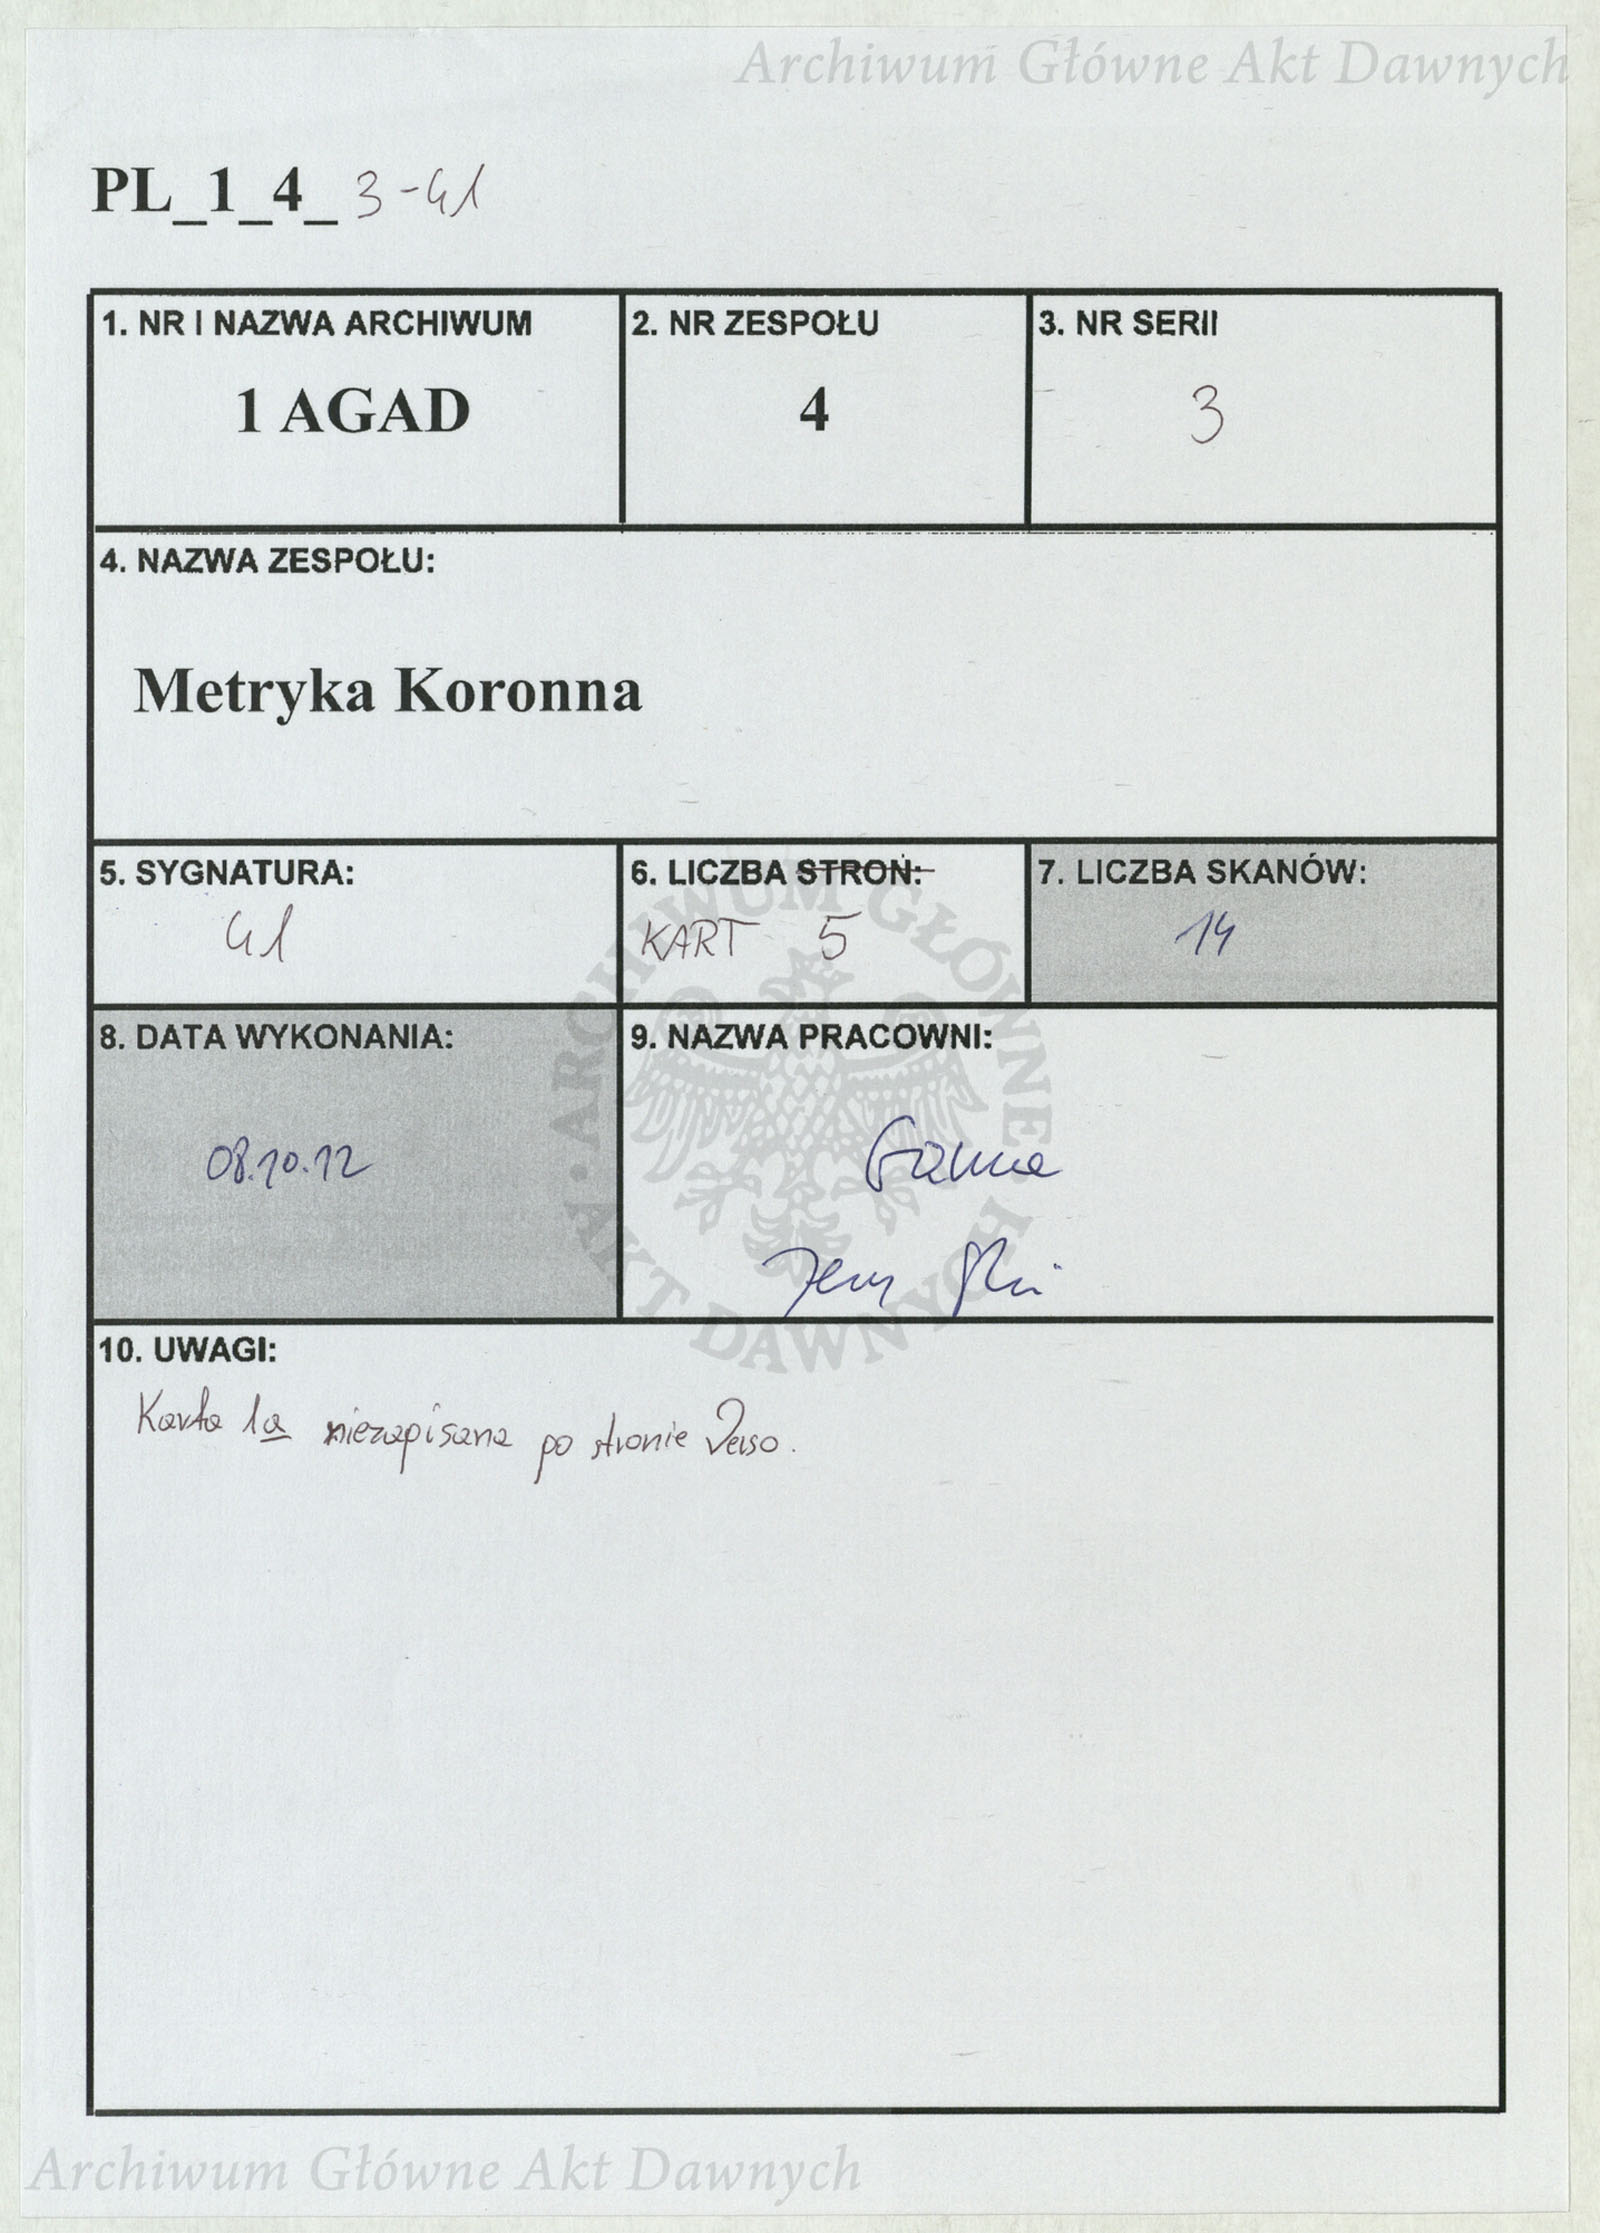 Archiwum Główne Akt Dawnych
PL_1_4_ 3-41
1. NR I NAZWA ARCHIWUM
1 AGAD
2. NR ZESPOŁU
4
3. NR SERII
3
4. NAZWA ZESPOŁU:
Metryka Koronna
5. SYGNATURA:
41
6. LICZBA STRON:
KART 5
7. LICZBA SKANÓW:
14
8. DATA WYKONANIA:
08.10.12
9. NAZWA PRACOWNI:
ARCHIWUM GŁÓWNE AKT DAWNYCH
10. UWAGI:
Karta 1a niezapisana po stronie Verso.
Archiwum Główne Akt Dawnych